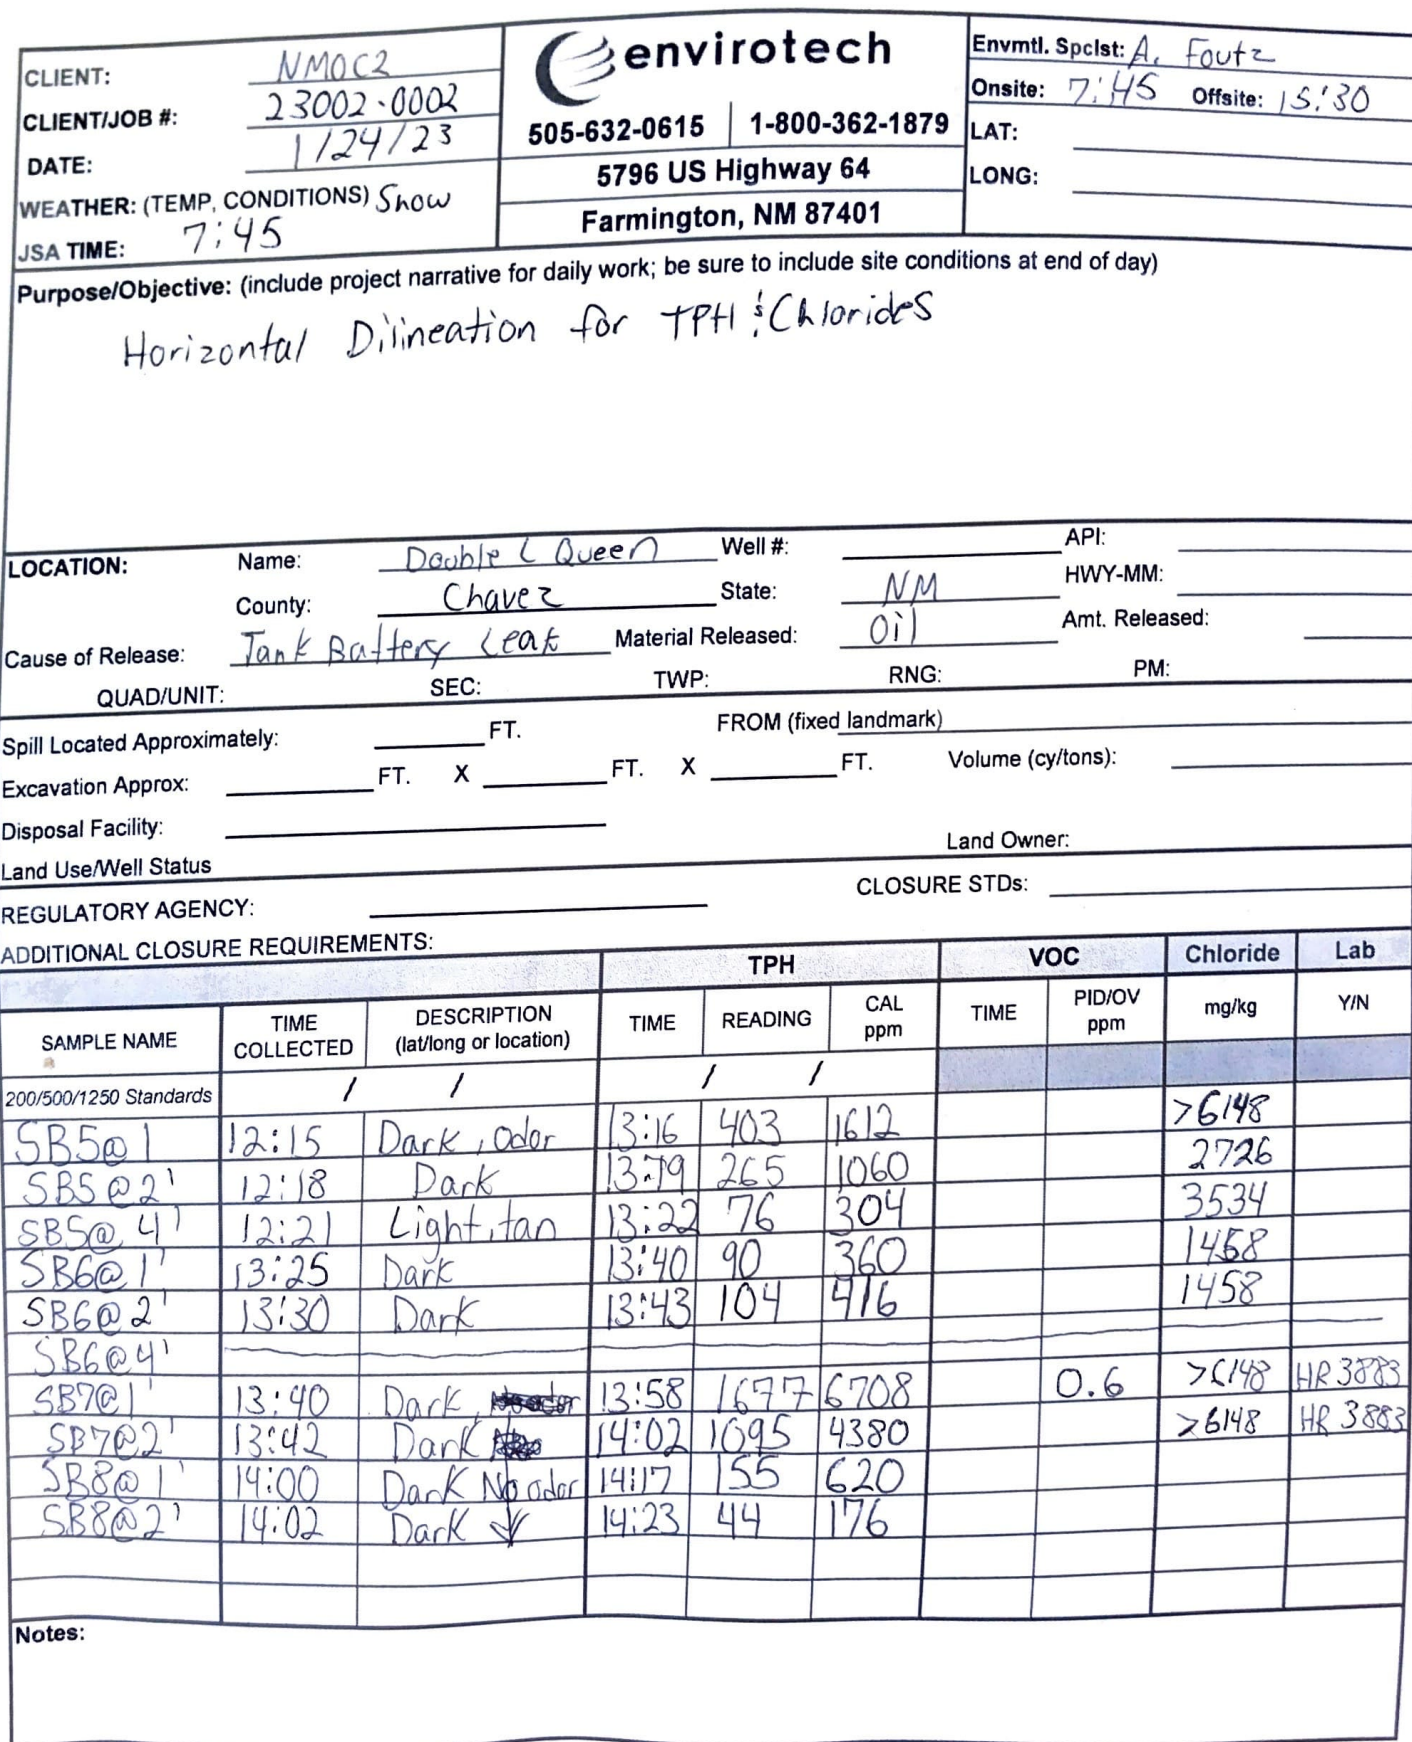 CLIENT: NMOC2
CLIENT/JOB #: 23002-0002
DATE: 1/24/23
WEATHER: (TEMP, CONDITIONS) Snow
JSA TIME: 7:45
envirotech
505-632-0615 | 1-800-362-1879
5796 US Highway 64
Farmington, NM 87401
Envmtl. Spclst: A. Foutz
Onsite: 7:45 Offsite: 15:30
LAT:
LONG:
Purpose/Objective: (include project narrative for daily work; be sure to include site conditions at end of day)
Horizontal Dilineation for TPH & Chlorides
LOCATION: Name: Double L Queen Well #: API:
County: Chavez State: NM HWY-MM:
Cause of Release: Tank Battery Leak Material Released: Oil Amt. Released:
QUAD/UNIT: SEC: TWP: RNG: PM:
Spill Located Approximately: FT. FROM (fixed landmark)
Excavation Approx: FT. X FT. X FT. Volume (cy/tons):
Disposal Facility:
Land Owner:
Land Use/Well Status
CLOSURE STDs:
REGULATORY AGENCY:
ADDITIONAL CLOSURE REQUIREMENTS:
TPH VOC Chloride Lab
SAMPLE NAME TIME COLLECTED DESCRIPTION (lat/long or location) TIME READING CAL ppm TIME PID/OV ppm mg/kg Y/N
200/500/1250 Standards / / / /
SB5@1 12:15 Dark, odor 13:16 403 1612 >6148
SB5@2' 12:18 Dark 265 1060 2726
SB5@4' 12:21 Light, tan 13:22 76 304 3534
SB6@1' 13:25 Dark 13:40 90 360 1458
SB6@2' 13:30 Dark 13:43 104 416 1458
SB6@4'
SB7@1' 13:40 Dark, 13:58 1677 6708 0.6 >6148 HR 3883
SB7@2' 13:42 Dark 14:02 1095 4380 >6148 HR 3883
SB8@1' 14:00 Dark No odor 14:17 155 620
SB8@2' 14:02 Dark ↓ 14:23 44 176
Notes: